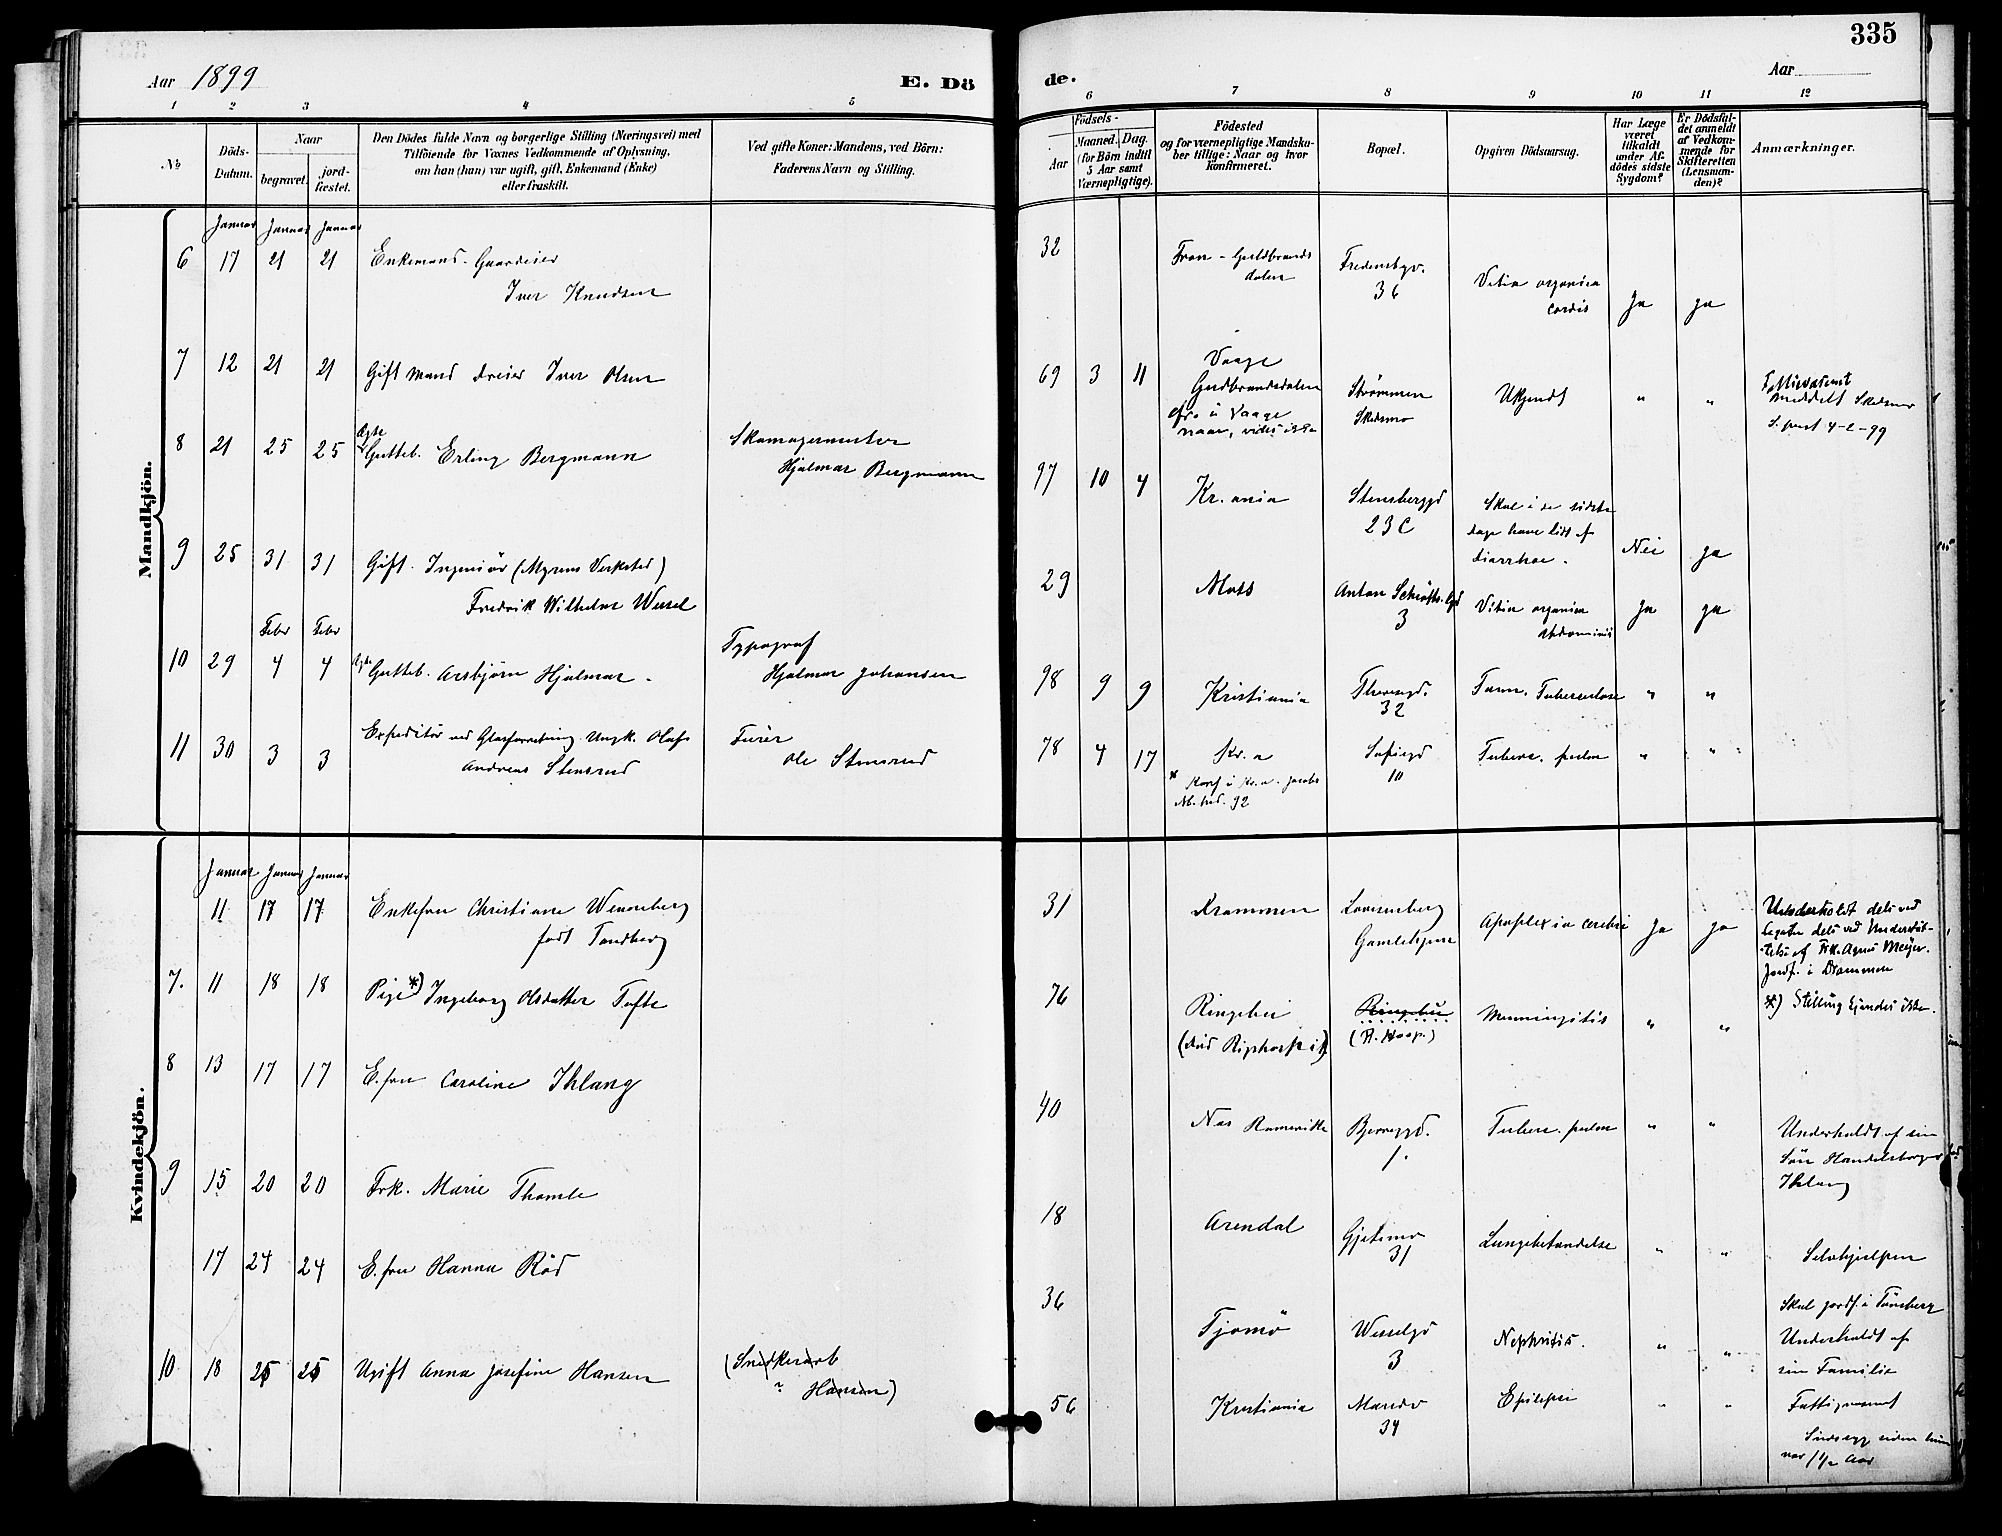 335
Aar 1899
E. Dö
de.
Aar
1 2 3 4 5
6 7 8 9 10 11 12
No
Döds-
Datum.
Naar
begravet.
jord-
fæstet.
Den Dödes fulde Navn og borgerlige Stilling (Næringsvei) med
Tilföiende for Voxnes Vedkommende af Oplysning,
om han (hun) var ugift, gift, Enkemand (Enke)
eller fraskilt.
Ved gifte Koner: Mandens, ved Börn:
Faderens Navn og Stilling.
Födsels-
Aar
Maaned.
Dag.
(for Börn indtil
5 Aar samt
Værnepligtige).
Födested
og for værnepligtige Mandska-
ber tillige: Naar og hvor
konfirmeret.
Bopæl.
Opgiven Dödsaarsag.
Har Læge
været
tilkaldt
under Af-
dödes sidste
Sygdom?
Er Dödsfal-
det anmeldt
af Vedkom-
mende for
Skifteretten
(Lensman-
den)?
Anmærkninger.
Mandkjön.
Januar Januar Januar
6 17 21 21 Enkemand. Gaardeier
Iver Knudsen
32 Fron - Guldbrands
dalen
Fredensbgv.
36
Vitia organica
cordis
Ja ja
7 12 21 21 Gift Mand dreier Iver Olsen
69 3 11 Vaage
Guldbrandsdalen
i Vaage
naar, vides ikke
Strømmen
Skedsmo
Ukjendt
" "
meddelt Skedsmo
S. prest 4-2-99
8 21 25 25 Ægte
Gutteb. Erling Bergmann
Skomagermester
Hjalmar Bergmann
97 10 4 Kr.ania
Stensberggd
23 C
Skal i de sidste
dage have lidt af
diarrhoe.
Nei ja
9 25 31 31 Gift. Ingeniør (Myrens Verksted)
Fredrik Wilhelm Wessel
29 Moss
Anton Schiøtts. gd
3
Vitia organica
abdominis
Ja ja
Febr Febr
10 29 4 4 Ægte Gutteb. Asbjørn Hjalmar.
Typograf
Hjalmar Johansen
98 9 9 Kristiania
Thoresgd.
32
Tarm. Tuberculose
" "
11 30 3 3 Expeditør ved Glasforretning Ungk. Olaf
Andreas Stensrud
Furer
Ole Stensrud
78 4 17 Kr. a
* Konf i Kr.a. Jacobs
92
Sofiegd
10
Tuberc. pulm
" "
Kvindekjön.
Januar Januar Januar
11 17 17 Enkefru Christiane Wenneberg
født Tandberg
31 Drammen
Lovisenberg
Gamlehjem
Apoplexia cerebri
Ja ja
Underholdt dels ved
legater dels ved Understøt-
telse af Frk. Agnes Meyer.
Jordf. i Drammen
7. 11 18 18 Pige *) Ingeborg Olsdatter Tofte
76 Ringebu
(død Rigshospit)
Ringebu
(R. Hosp.)
Menningitis
" "
*) Stilling kjendes ikke.
8 13 17 17 E.fru Caroline Ihlang
40 Nes Romerike
Bjerregd.
1.
Tuberc. pulm
" "
Underholdt af sin
Søn Handelsborger
Ihlang
9 15 20 20 Frk. Marie Thomle
18 Arendal
Gjetemv
31
Lungebetændelse
" "
Selvhjulpen
17 24 24 E.fru Hanna Rød
36 Tjømø
Wesselgd
3
Nephritis.
" "
Skal jordf. i Tønsberg
Underholdt af
sin Familie
10 18 25 25 Ugift Anna Josefine Hansen
(Snedkerarb
" Hansen)
56 Kristiania
Maridv
34
Epilepsi
" "
Fattigvæsenet
Sindssyg siden hun
var 1 1/2 Aar